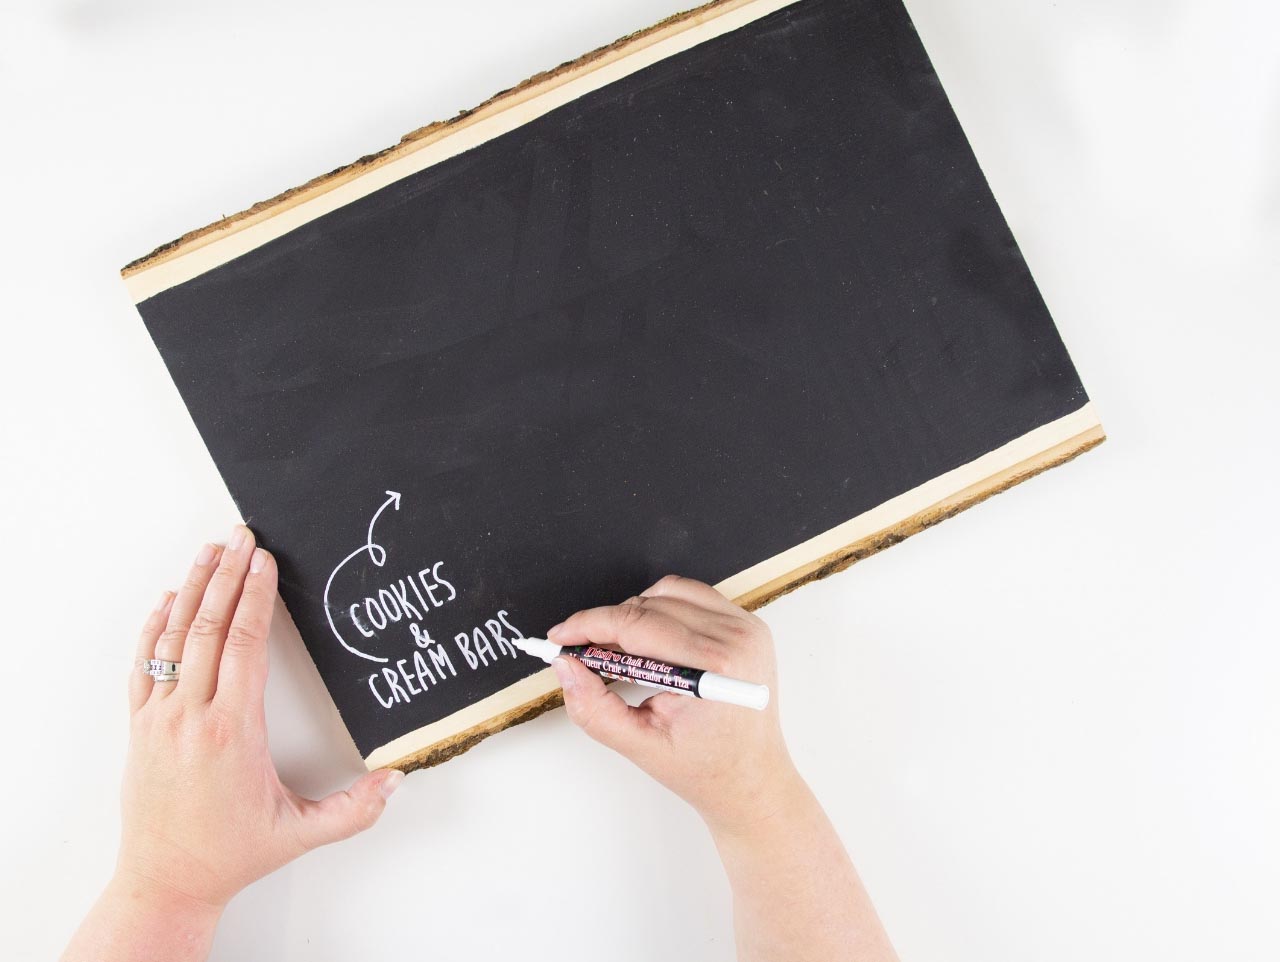 COOKIES
&
CREAM BARS
Chalk Marker
Marqueur Craie • Marcador de Tiza